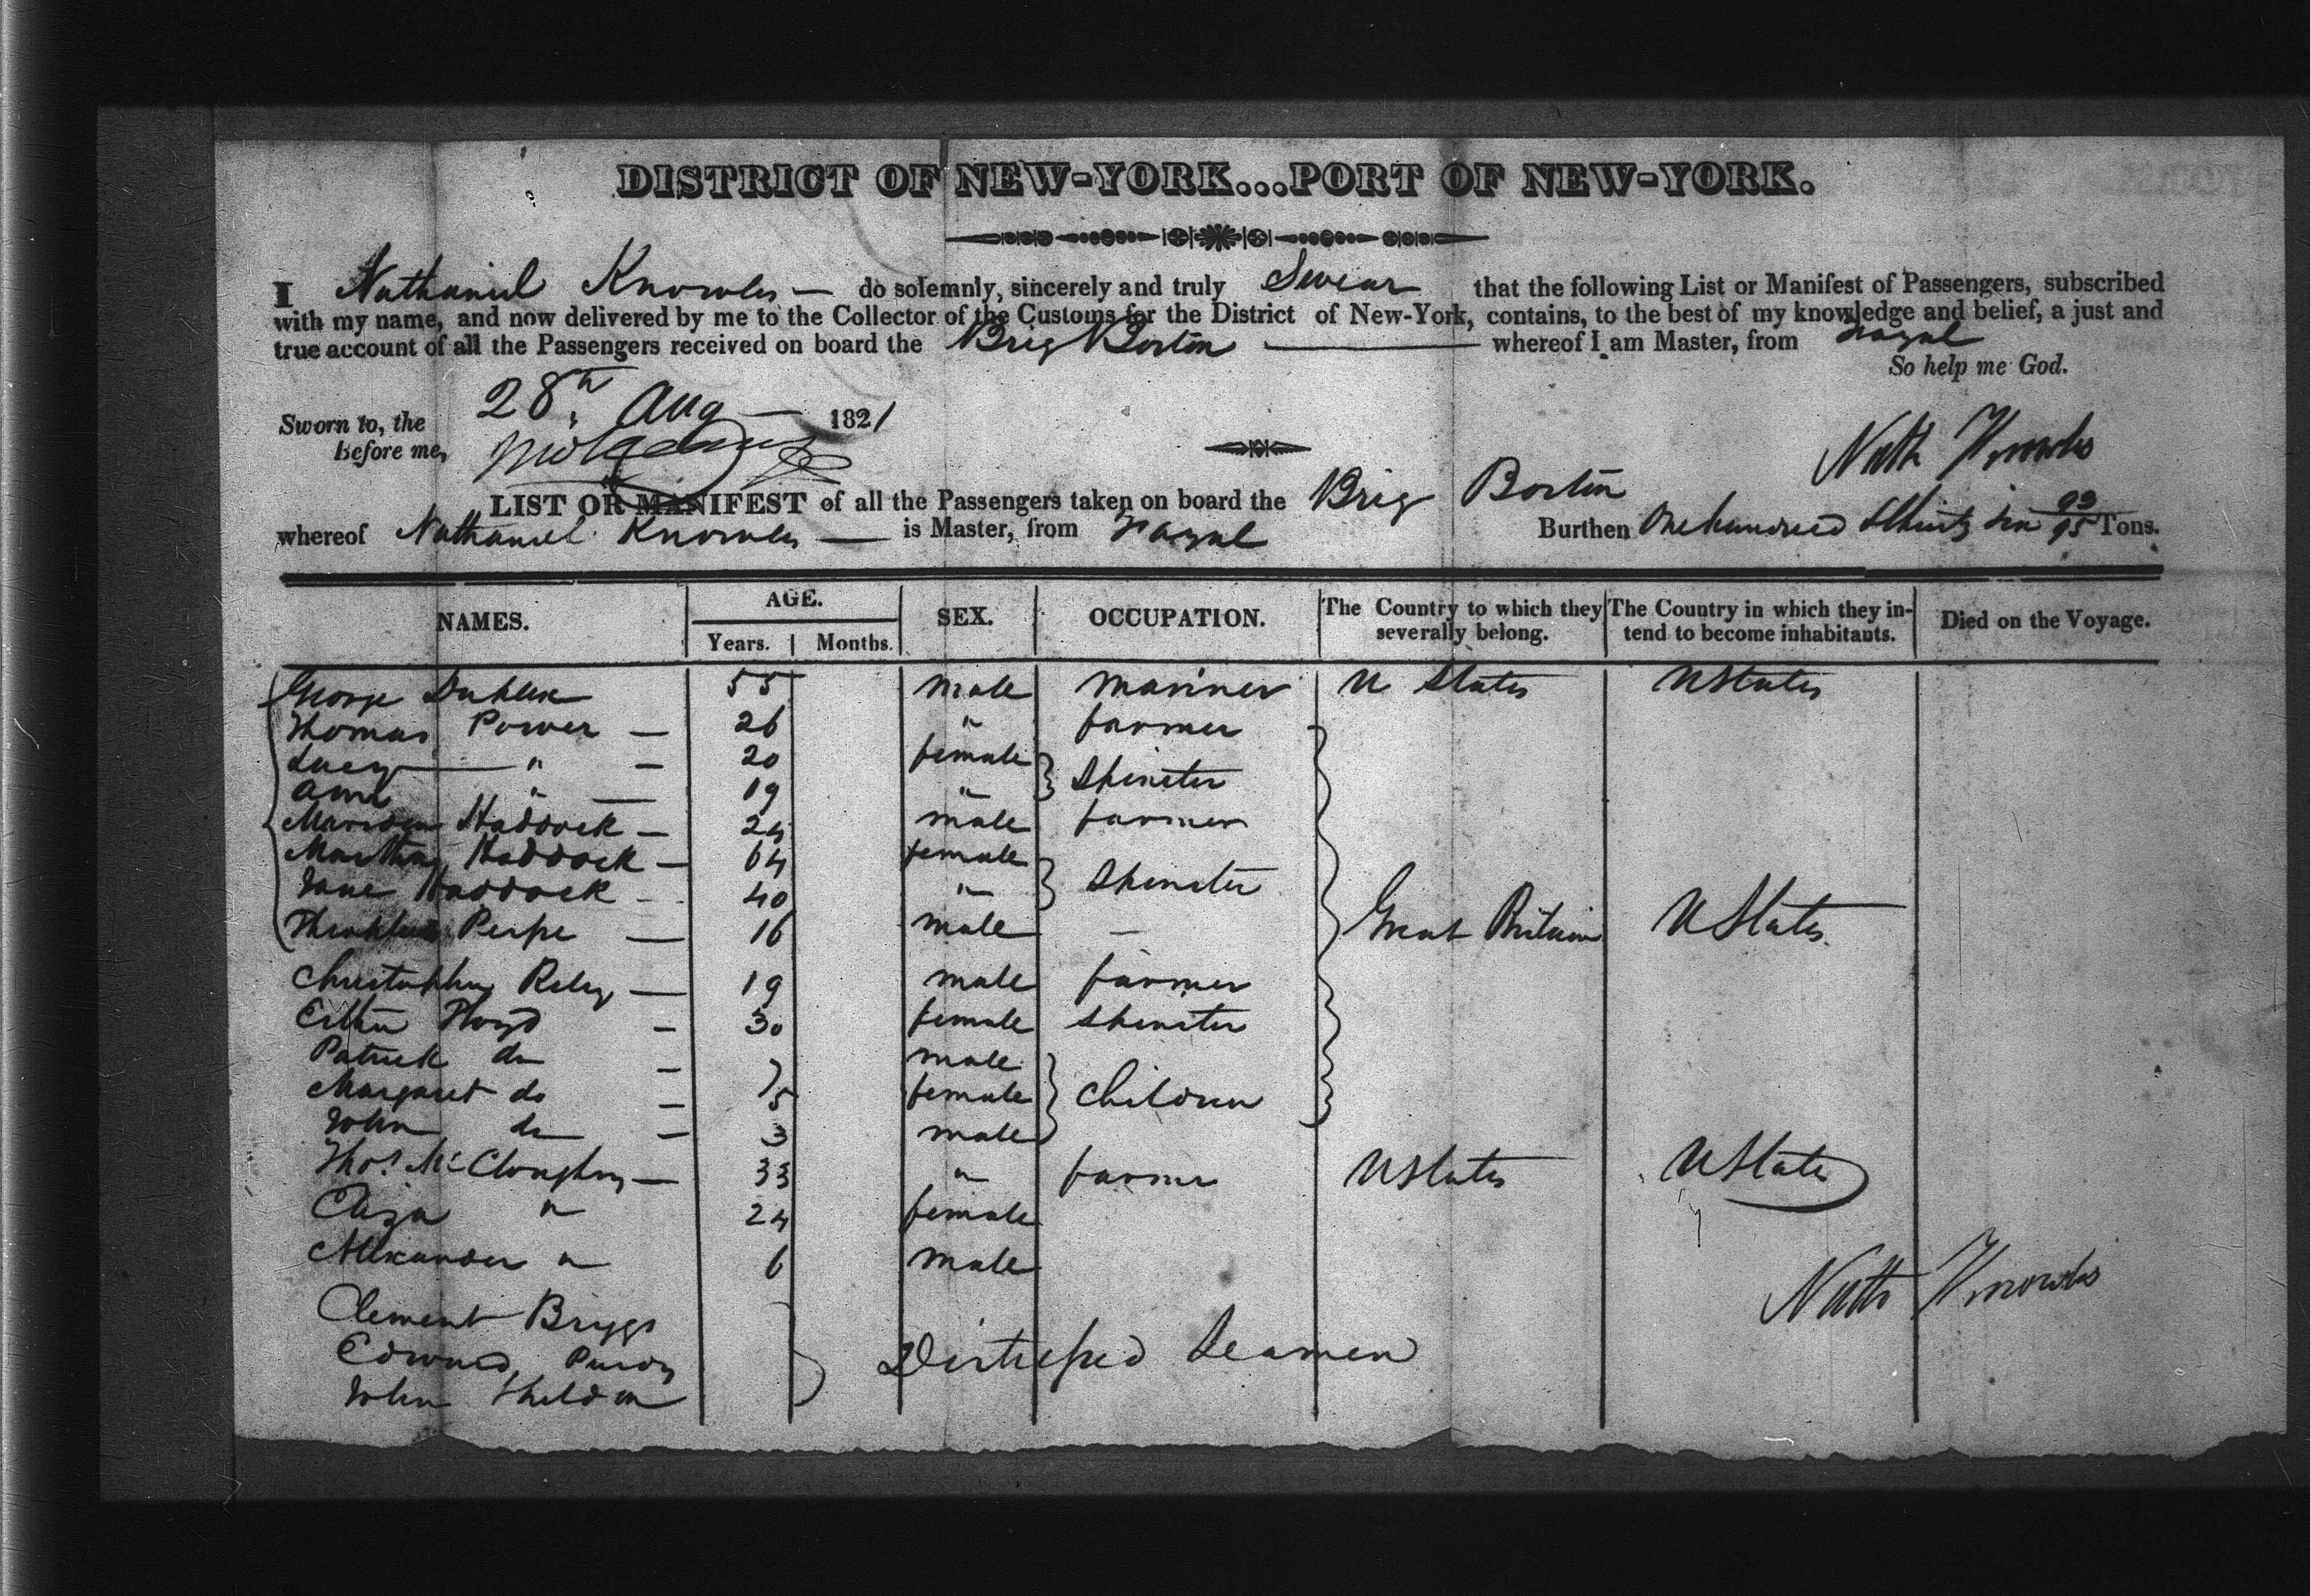 DISTRICT OF NEW-YORK...PORT OF NEW-YORK.
I Nathaniel Knowles — do solemnly, sincerely and truly Swear that the following List or Manifest of Passengers, subscribed
with my name, and now delivered by me to the Collector of the Customs for the District of New-York, contains, to the best of my knowledge and belief, a just and
true account of all the Passengers received on board the Brig Boston — whereof I am Master, from Fayal
So help me God.
Sworn to, the 28th Aug — 1821
Before me,
Nath Knowles
LIST OR MANIFEST of all the Passengers taken on board the Brig Boston
whereof Nathaniel Knowles — is Master, from Fayal Burthen One hundred & thirty six 93/95 Tons.
NAMES. AGE. SEX. OCCUPATION. The Country to which they severally belong. The Country in which they intend to become inhabitants. Died on the Voyage.
Years. Months.
George 55 male mariner U States U States
Thomas Power — 26 " farmer
Lucy " — 20 female
Ann " — 19 " Spinster
Haddock — 24 male farmer
Martha Haddock — 64 female
Jane Haddock - 40 " Spinster
Perpe — 16 male — Great Britain U States
Christopher Reley — 19 male farmer
Esther Floyd — 30 female Spinster
Patrick do — 7 male
Margaret do — 5 female Children
John do — 3 male
Thos. McCloughry — 33 " farmer U States U States
Eliza " 24 female
Alexander " 6 male
Nath Knowles
Clement Briggs
Edward Purdy Distressed Seamen
John Sheldon